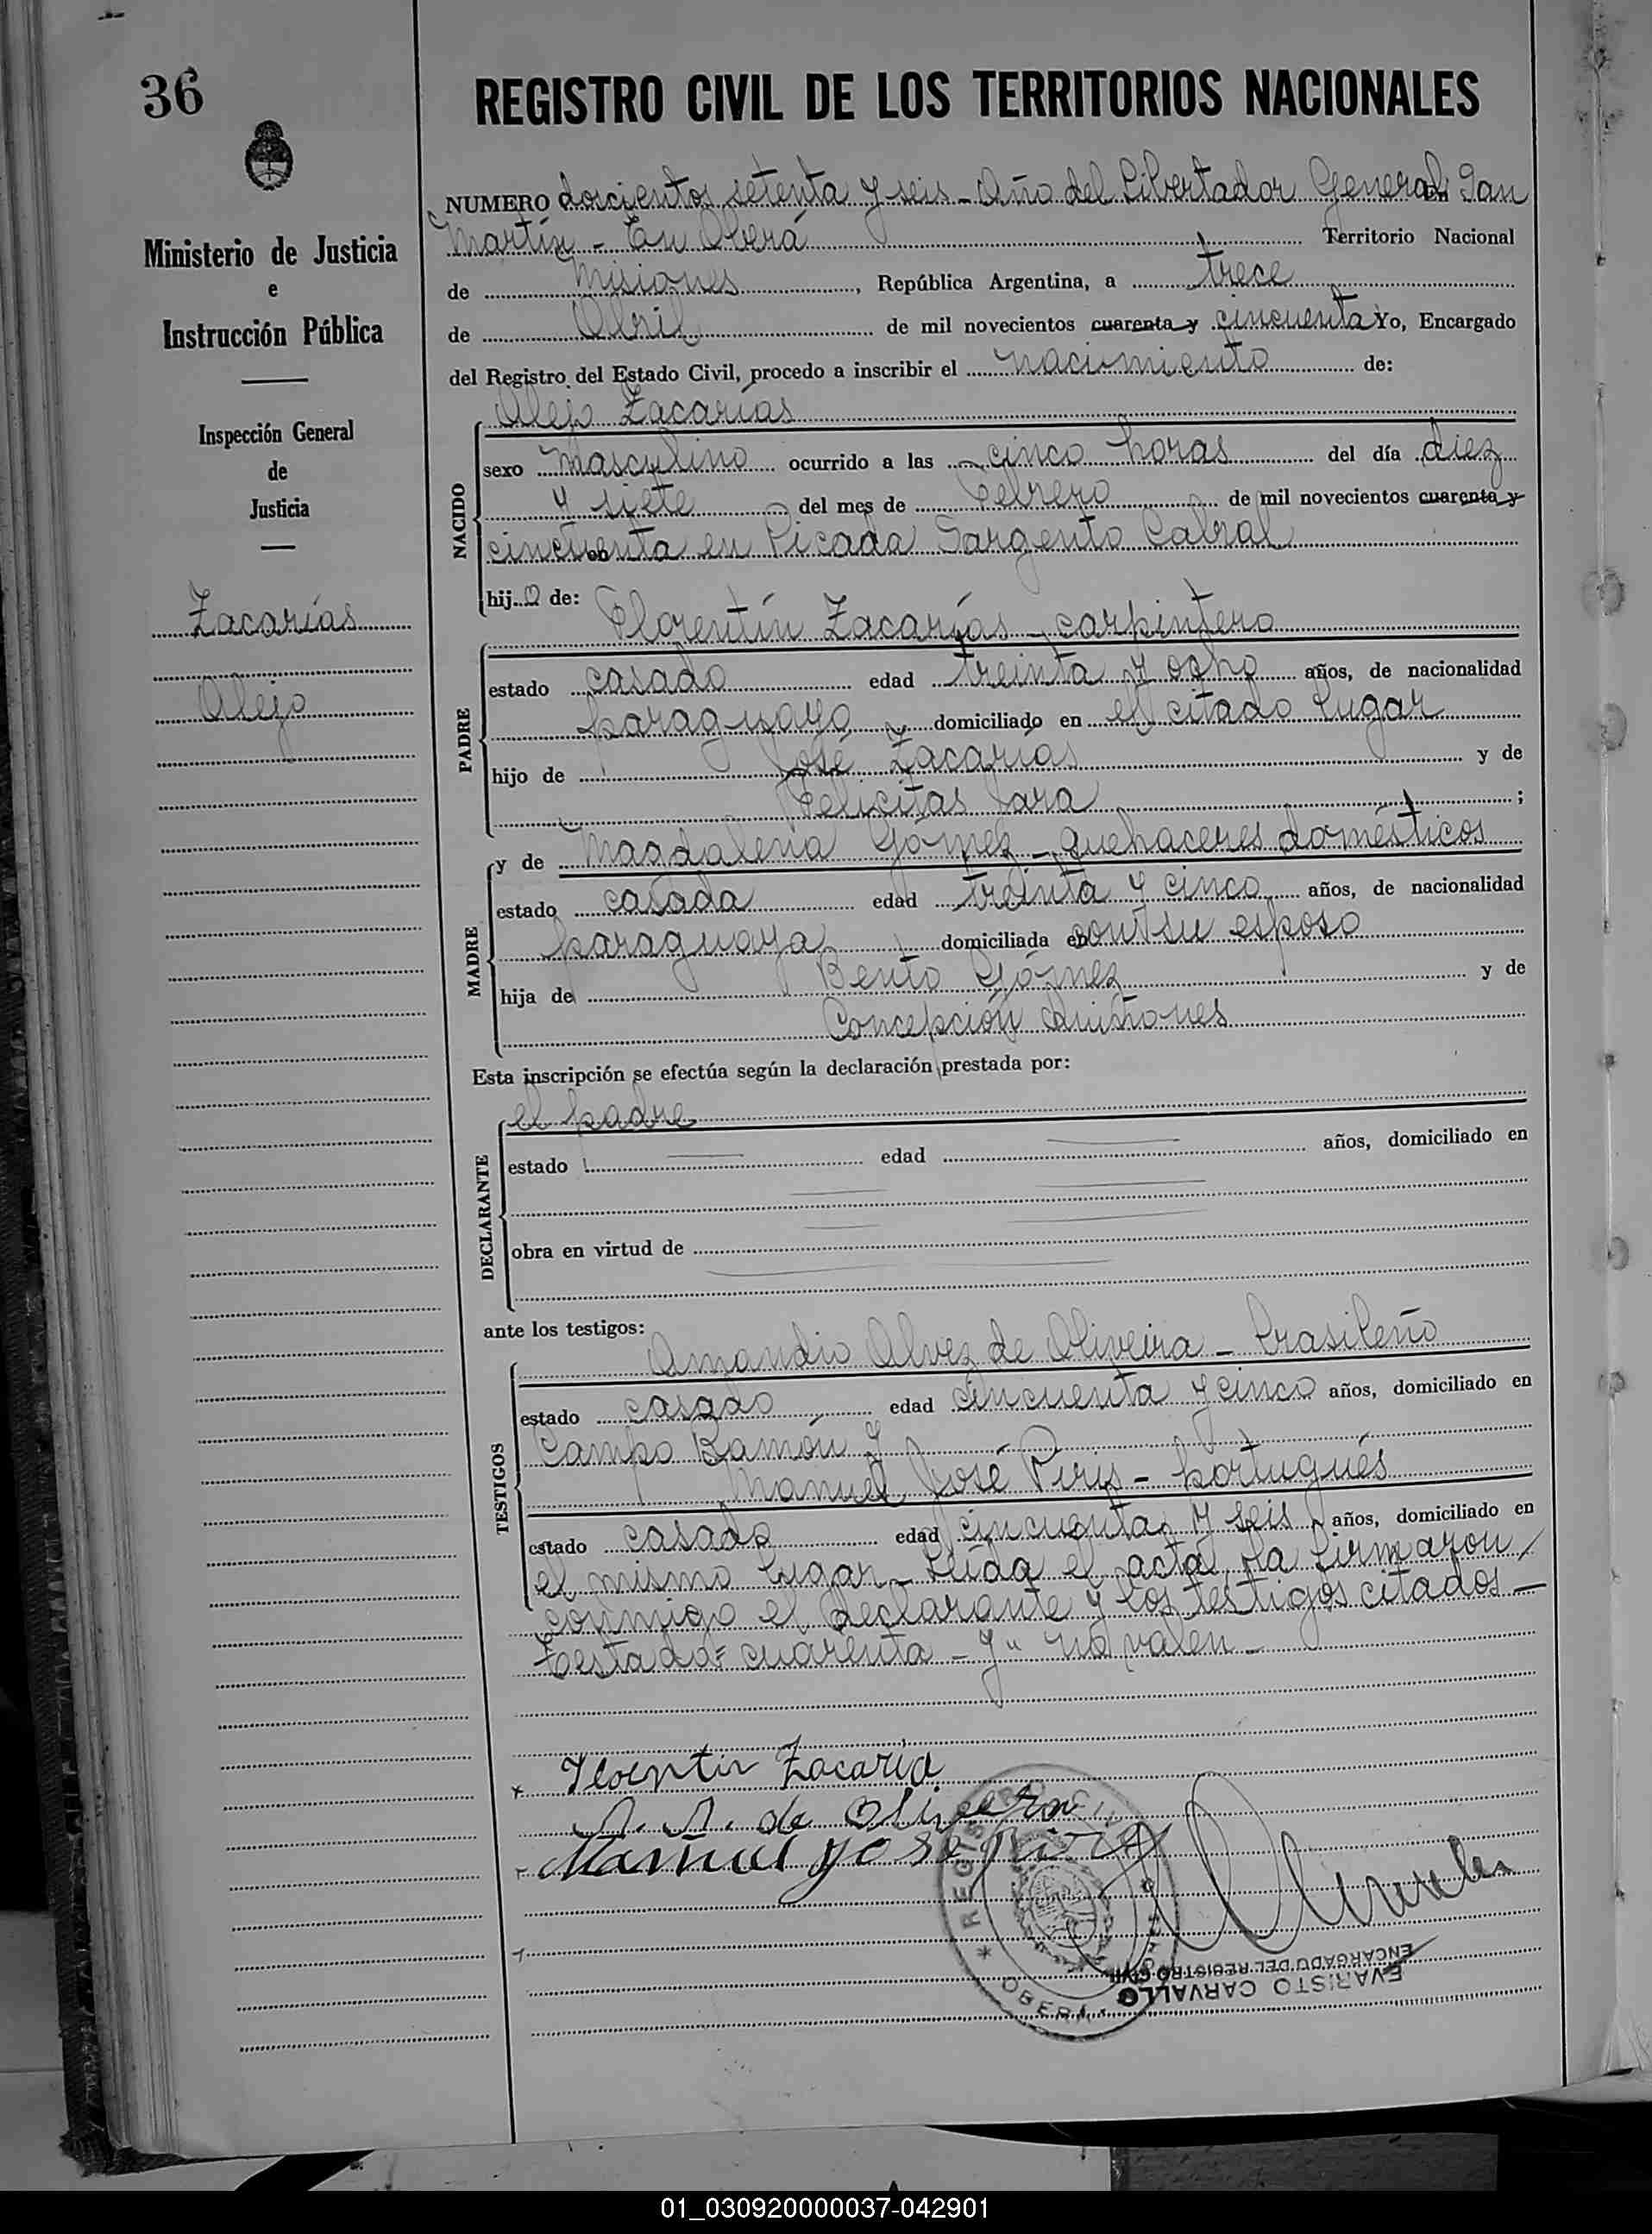 36
REGISTRO CIVIL DE LOS TERRITORIOS NACIONALES
Ministerio de Justicia
e
Instrucción Pública
Inspección General
de
Justicia
Zacarías
Alejo
NUMERO doscientos setenta y seis - Año del Libertador General San
Martín - En Oberá Territorio Nacional
de Misiones, República Argentina, a trece
de Abril de mil novecientos cuarenta y cincuenta Yo, Encargado
del Registro del Estado Civil, procedo a inscribir el nacimiento de:
NACIDO
Alejo Zacarías
sexo masculino ocurrido a las cinco horas del día diez
y siete del mes de Febrero de mil novecientos cuarenta y
cincuenta en Picada Sargento Cabral
hijo de:
PADRE
Florentín Zacarías - carpintero
estado casado edad treinta y ocho años, de nacionalidad
paraguaya domiciliado en el citado lugar
hijo de José Zacarías y de
Felicitas Jara ;
MADRE
y de Magdalena Gómez - quehaceres domésticos
estado casada edad treinta y cinco años, de nacionalidad
paraguaya domiciliada en con su esposo
hija de Bento Gómez y de
Concepción Quiñones
Esta inscripción se efectúa según la declaración prestada por:
DECLARANTE
el padre
estado edad años, domiciliado en
obra en virtud de
ante los testigos:
TESTIGOS
Amandio Alvez de Oliveira - brasileño
estado casado edad cincuenta y cinco años, domiciliado en
Campo Ramón y
Manuel José Pirys - portugués
estado casado edad cincuenta y seis años, domiciliado en
el mismo lugar - Leída el acta, la firmaron
conmigo el declarante y los testigos citados -
Testado: cuarenta - y" no valen -
Florentin Zacaria
A. A. de Olivera
Manuel José
REGISTRO CIVIL
OBERA
EVARISTO CARVALLO
ENCARGADO DEL REGISTRO CIVIL
01_030920000037-042901